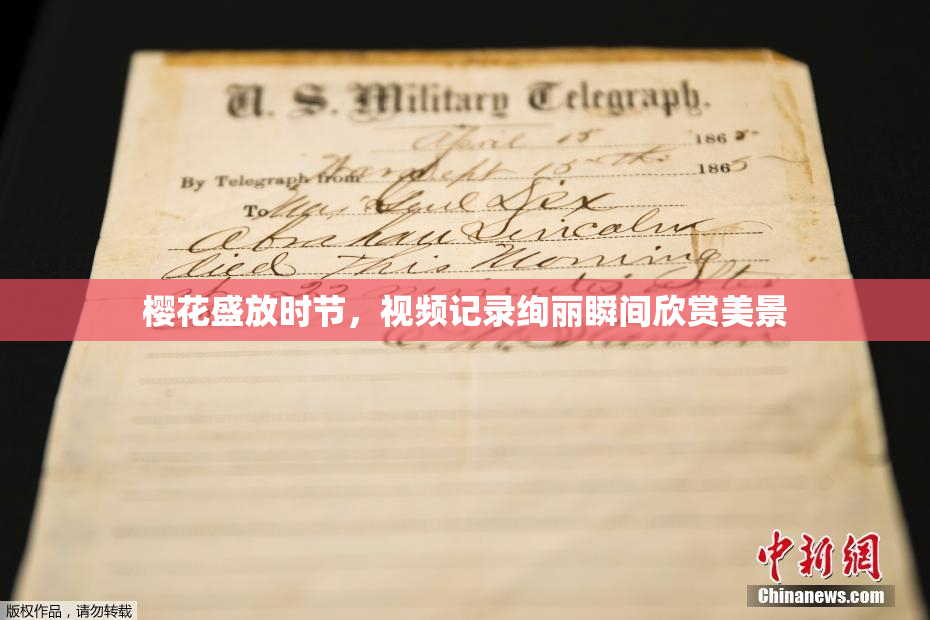 U. S. Military Telegraph.
April 15 1865-
By Telegraph from War Dept 15th 1865
To Maj Genl Dix
Abraham Lincoln
died This Morning
at 22 minutes after
樱花盛放时节，视频记录绚丽瞬间欣赏美景
E. M. Stanton
中新网
Chinanews.com
版权作品，请勿转载